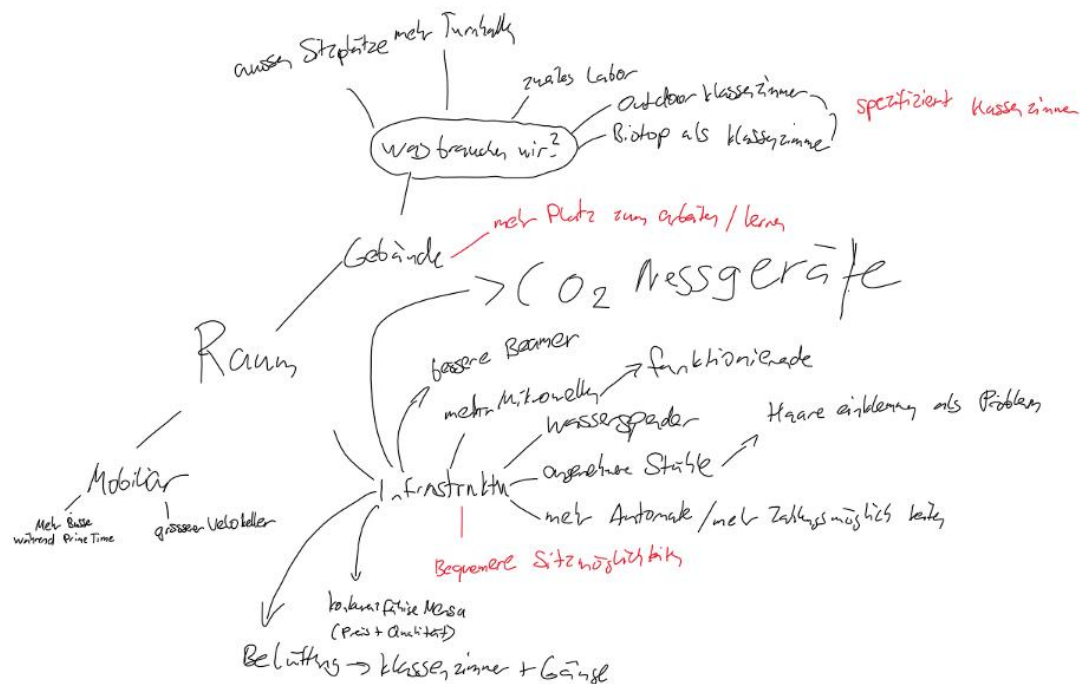 aussen Sitzplätze
mehr Turnhallen
zweites Labor
Outdoor Klassenzimmer
Biotop als Klassenzimmer
spezifiziert Klassenzimmer
Was brauchen wir?
mehr Platz zum arbeiten / lernen
Gebäude
CO2 Messgeräte
Raum
bessere Beamer
mehr Mikrowellen
funktionierende
Wasserspender
Haare einklemmung als Problem
angenehmere Stühle
Mobiliär
Infrastruktur
mehr Automaten / mehr Zahlungsmöglichkeiten
Mehr Busse
während Prime Time
grösserer Velokeller
Bequemere Sitzmöglichkeiten
konkurrenzfähige Mensa
(Preis + Qualität)
Belüftung → Klassenzimmer + Gänge